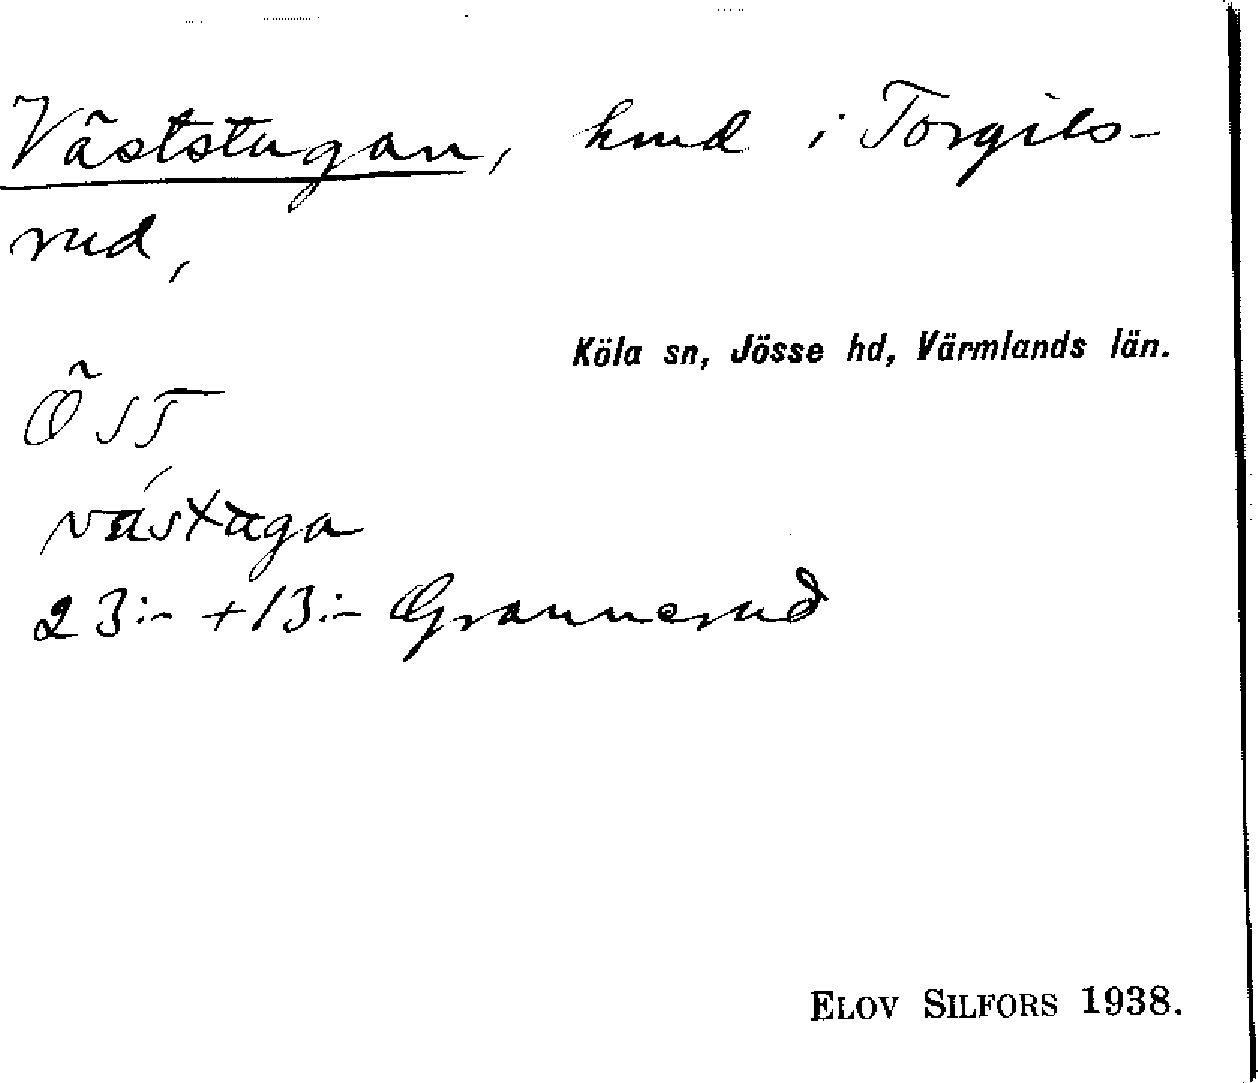 Väststugan, hmd i Torgils-
rud,
Köla sn, Jösse hd, Värmlands län.
ÖST
västuga
23:- + 13:- Grannerud
ELOV SILFORS 1938.